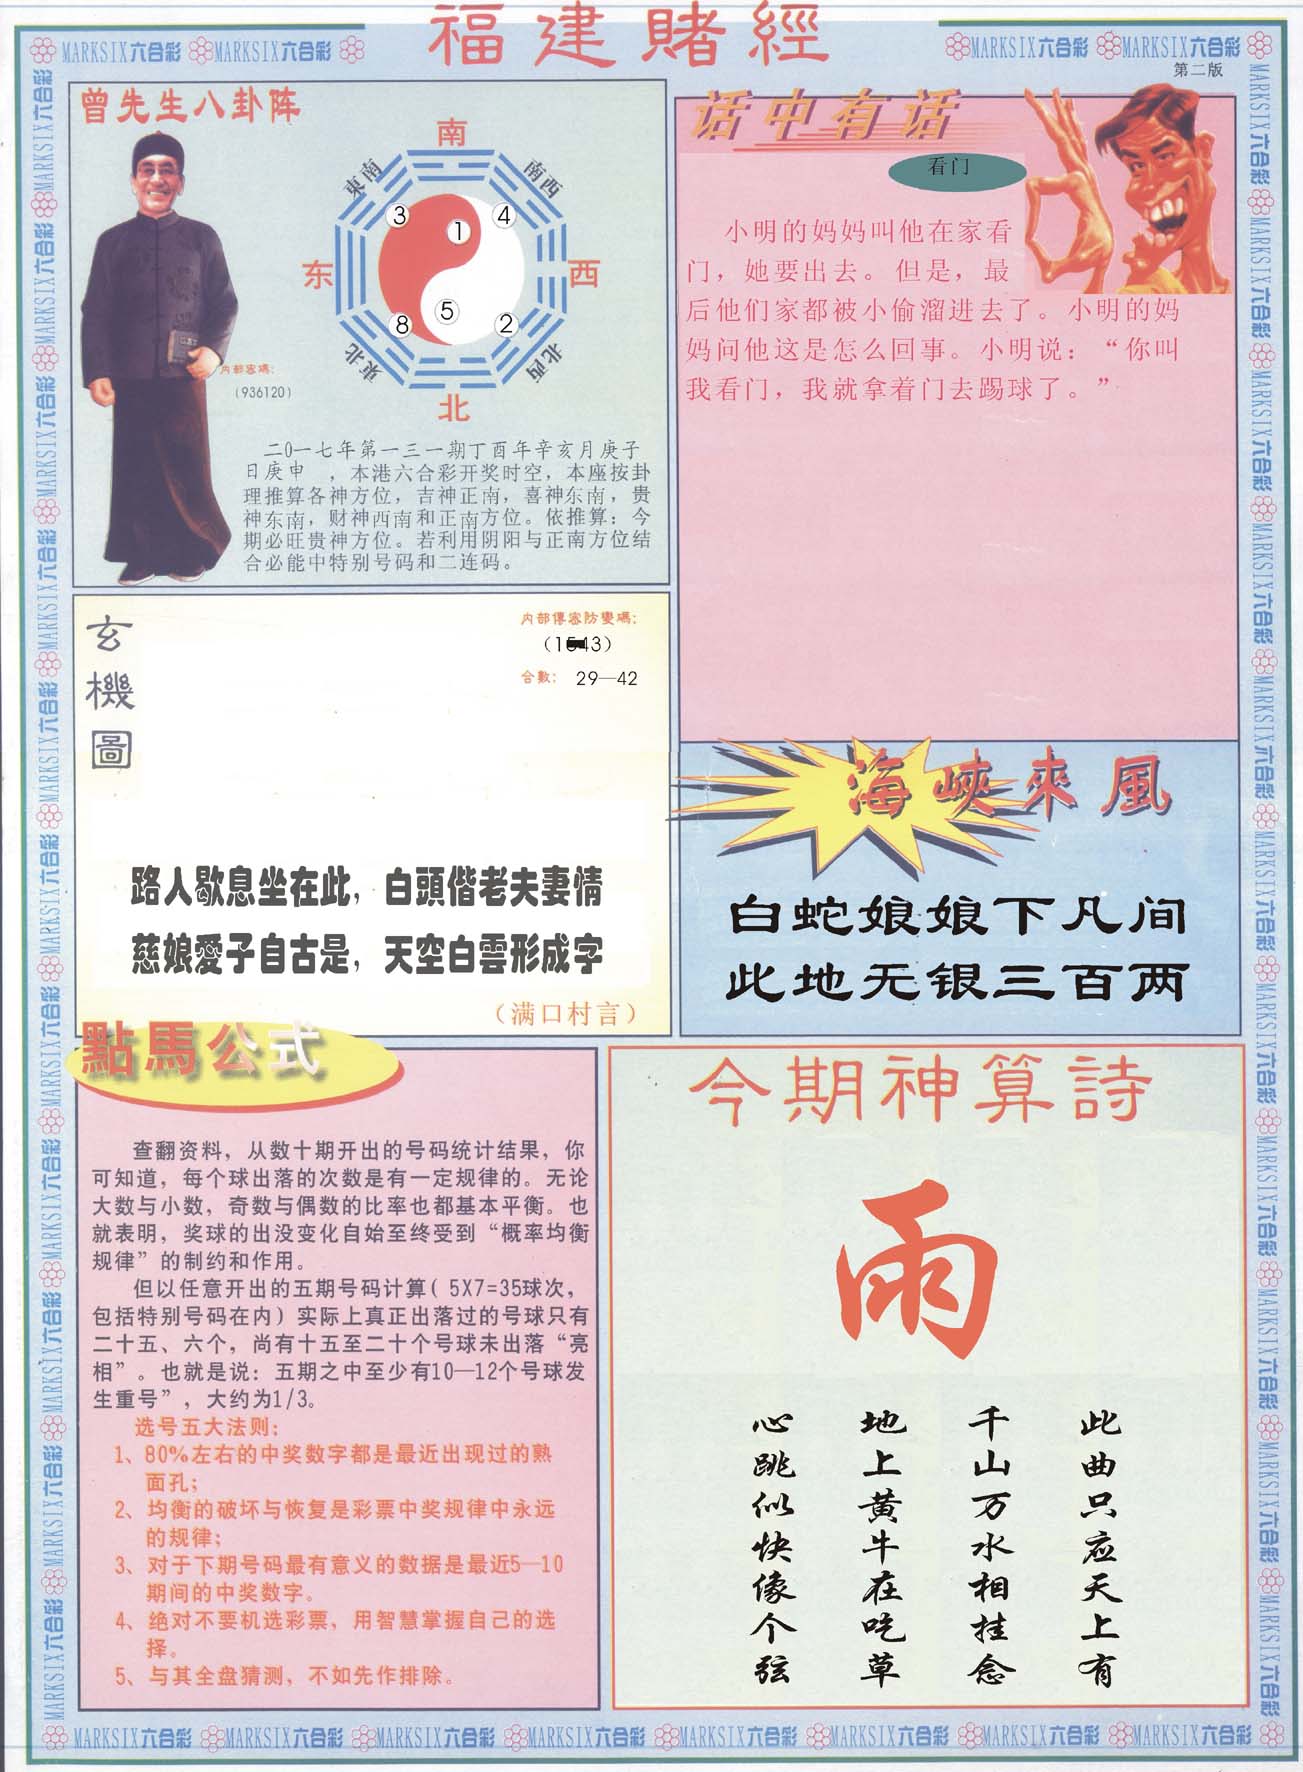 福建賭經
MARKSIX六合彩 MARKSIX六合彩
MARKSIX六合彩 MARKSIX六合彩
第二版
曾先生八卦阵
南
東南
南西
3
4
1
东
西
5
8
2
東北
北西
北
内部密碼：
（936120）
二0一七年第一三一期丁酉年辛亥月庚子
日庚申 ，本港六合彩开奖时空，本座按卦
理推算各神方位，吉神正南，喜神东南，贵
神东南，财神西南和正南方位。依推算：今
期必旺贵神方位。若利用阴阳与正南方位结
合必能中特别号码和二连码。
话中有话
看门
小明的妈妈叫他在家看
门，她要出去。但是，最
后他们家都被小偷溜进去了。小明的妈
妈问他这是怎么回事。小明说：“你叫
我看门，我就拿着门去踢球了。”
玄機圖
内部傳密防變碼：
合數： 29—42
路人歇息坐在此，白頭偕老夫妻情
慈娘愛子自古是，天空白雲形成字
（满口村言）
海峽來風
白蛇娘娘下凡间
此地无银三百两
點馬公式
查翻资料，从数十期开出的号码统计结果，你
可知道，每个球出落的次数是有一定规律的。无论
大数与小数，奇数与偶数的比率也都基本平衡。也
就表明，奖球的出没变化自始至终受到“概率均衡
规律”的制约和作用。
但以任意开出的五期号码计算（5X7=35球次，
包括特别号码在内）实际上真正出落过的号球只有
二十五、六个，尚有十五至二十个号球未出落“亮
相”。也就是说：五期之中至少有10—12个号球发
生重号”，大约为1/3。
选号五大法则：
1、80%左右的中奖数字都是最近出现过的熟
面孔；
2、均衡的破坏与恢复是彩票中奖规律中永远
的规律；
3、对于下期号码最有意义的数据是最近5—10
期间的中奖数字。
4、绝对不要机选彩票，用智慧掌握自己的选
择。
5、与其全盘猜测，不如先作排除。
今期神算詩
雨
此曲只应天上有
千山万水相挂念
地上黄牛在吃草
心跳似快像个弦
MARKSIX六合彩 MARKSIX六合彩 MARKSIX六合彩 MARKSIX六合彩 MARKSIX六合彩 MARKSIX六合彩 MARKSIX六合彩 MARKSIX六合彩